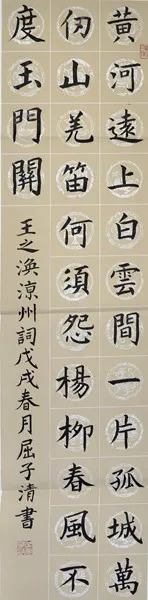 黄河遠上白雲間一片孤城萬
仞山羌笛何須怨楊柳春風不
度玉門關
王之渙涼州詞戊戌春月屈子清書